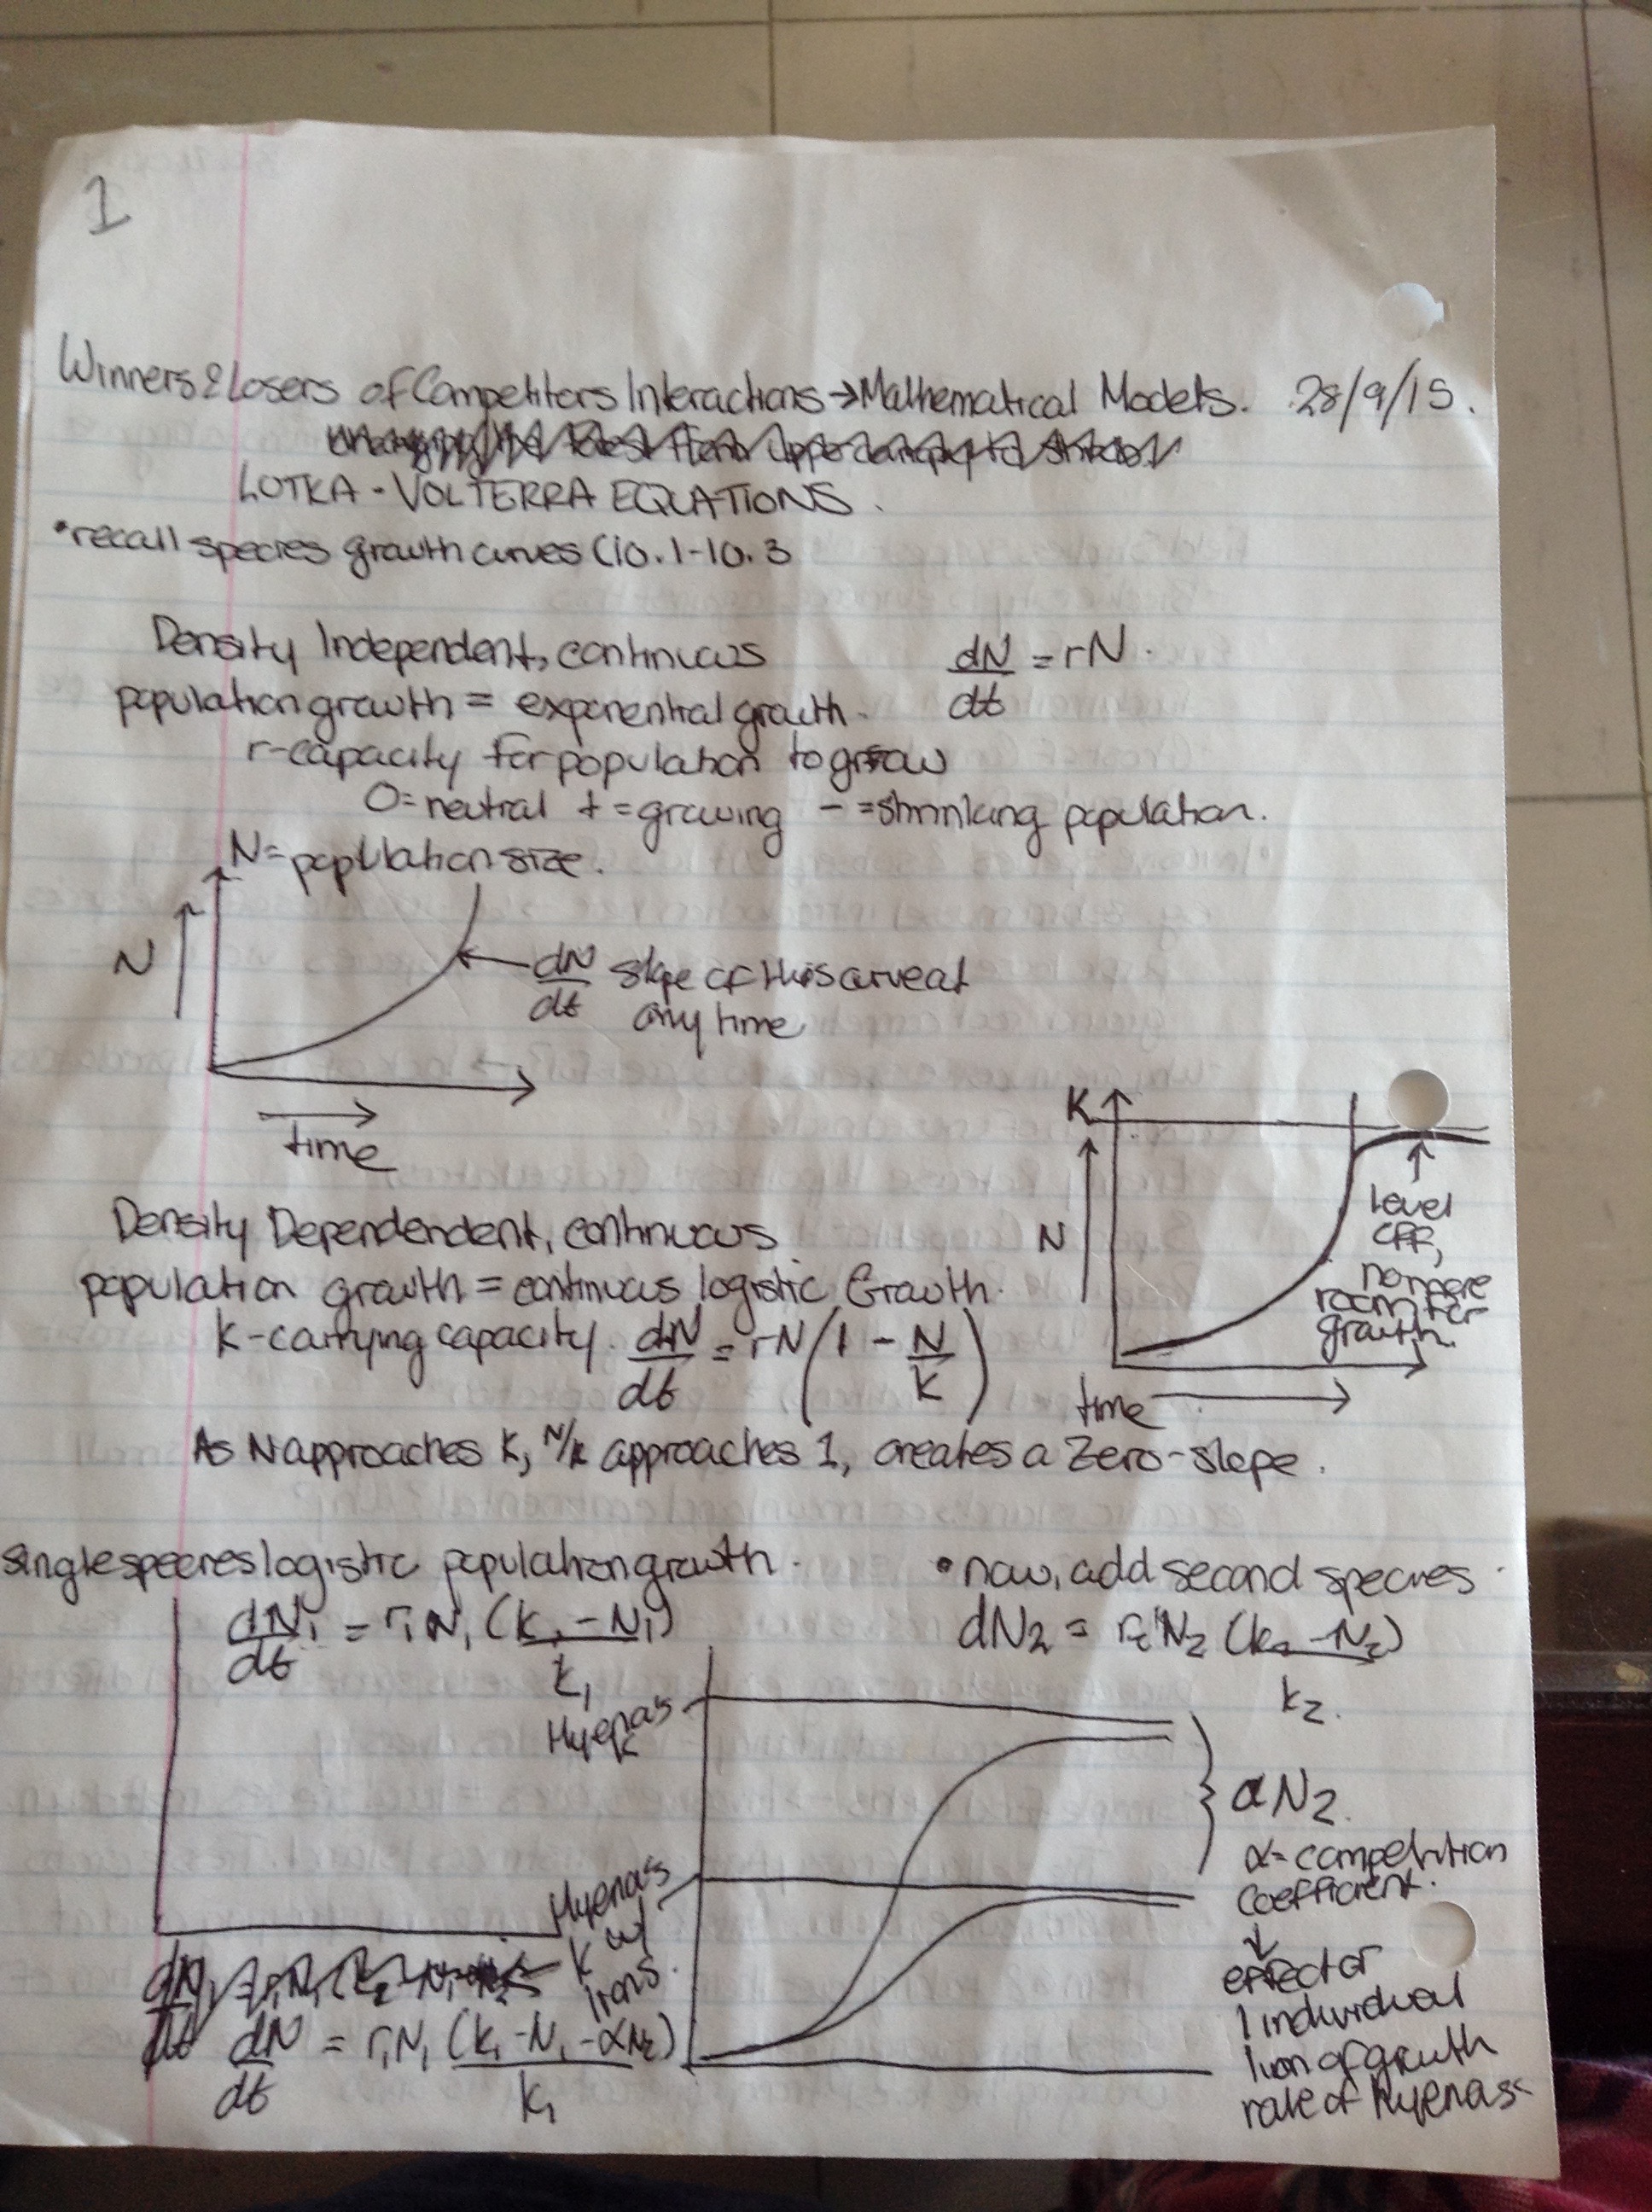 1
Winners & Losers of Competitors Interactions → Mathematical Models. 28/9/15.
LOTKA - VOLTERRA EQUATIONS.
•recall species growth curves (10.1-10.3
Density Independent, continuous
population growth = exponential growth.
dN/dt = rN.
r-capacity for population to grow
0=neutral + =growing - =shrinking population.
N= population size.
N
dN/dt slope of this curve at
any time
time
K
N
level
off,
no more
room for
growth.
time
Density Dependendent, continuous
population growth = continuous logistic Growth.
K-carrying capacity. dN/dt = rN(1 - N/K)
As N approaches K, N/K approaches 1, creates a Zero-slope.
single species logistic population growth.
dN₁/dt = r₁N₁ (K₁-N₁)/K₁
•now, add second species
dN₂ = r₂N₂ (K₂-N₂)/K₂.
Hyenas
K
αN₂.
α=competition
coefficient.
↓
effect or
1 individual
lion of growth
rate of hyenas
Hyenas
K w/
lions.
dN/dt = r₁N₁ (K₁-N₁-αN₂)/K₁